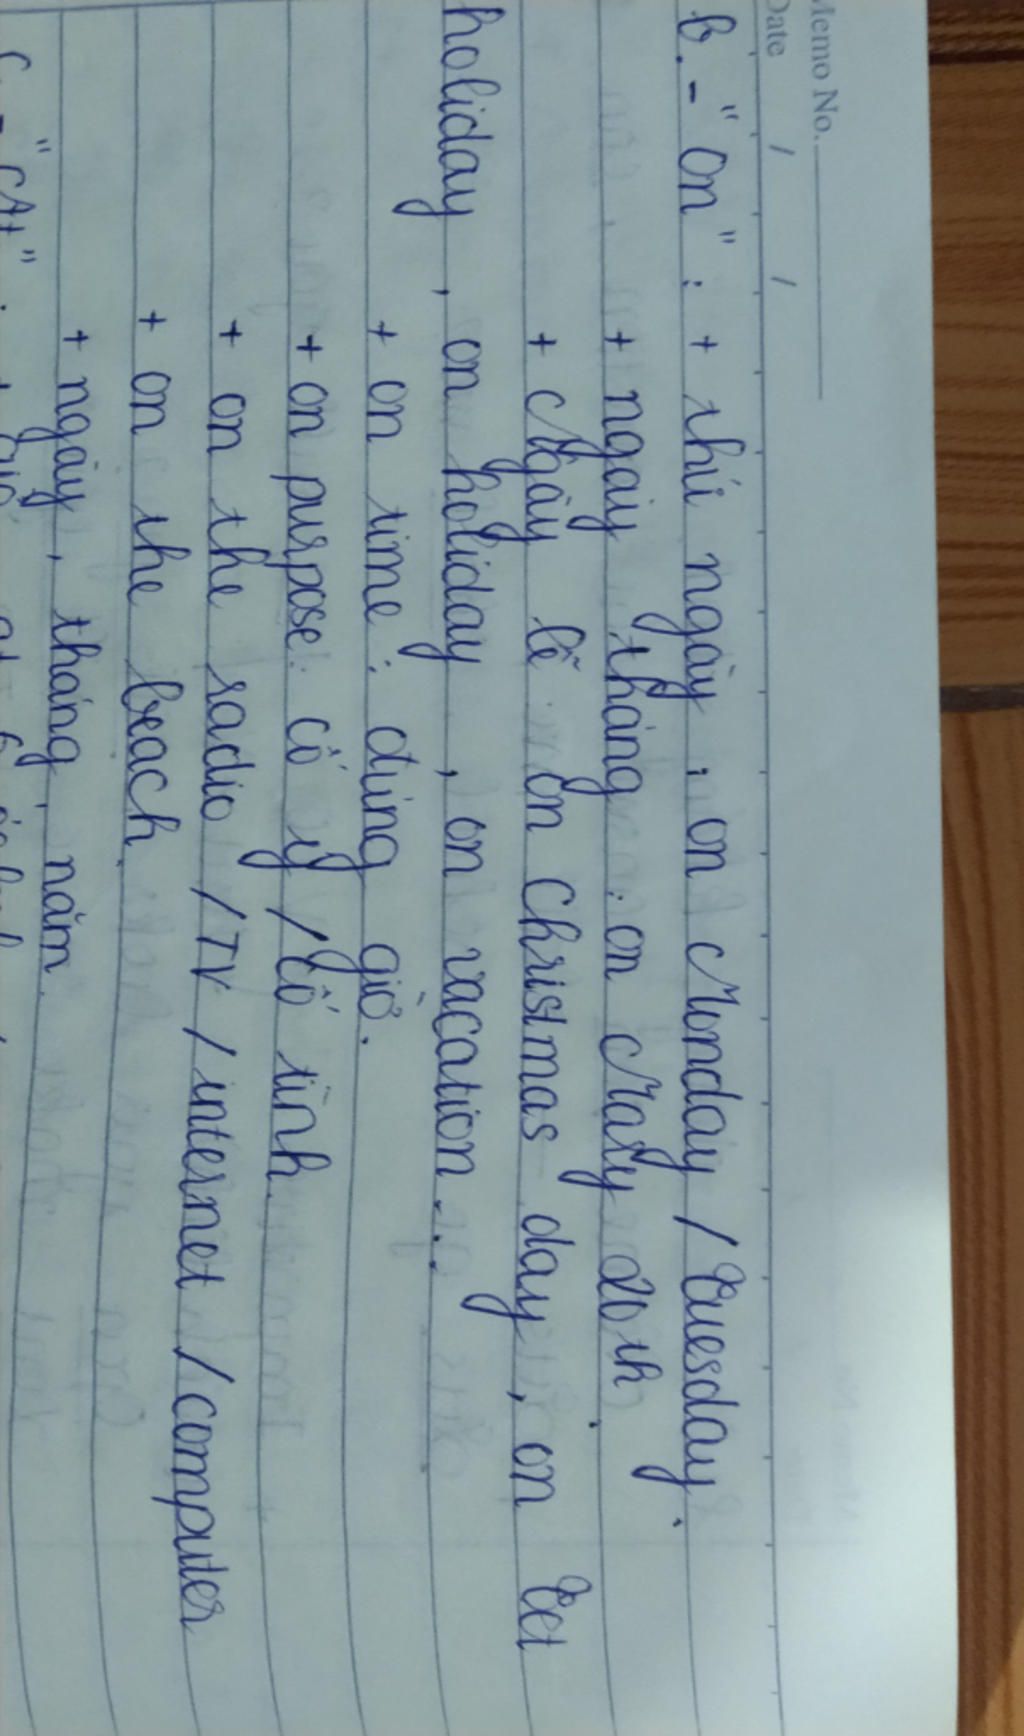 Memo No.
Date / /
b. - "on" : + thứ ngày : on Monday / Tuesday.
+ ngày tháng : on Mary 20th.
+ Ngày lễ : on Christmas day, on Tet
holiday, on holiday, on vacation...
+ on time : đúng giờ.
+ on purpose : cố ý / cố tình.
+ on the radio / TV / internet / computer
+ on the beach.
+ ngày, tháng, năm.
"At" :